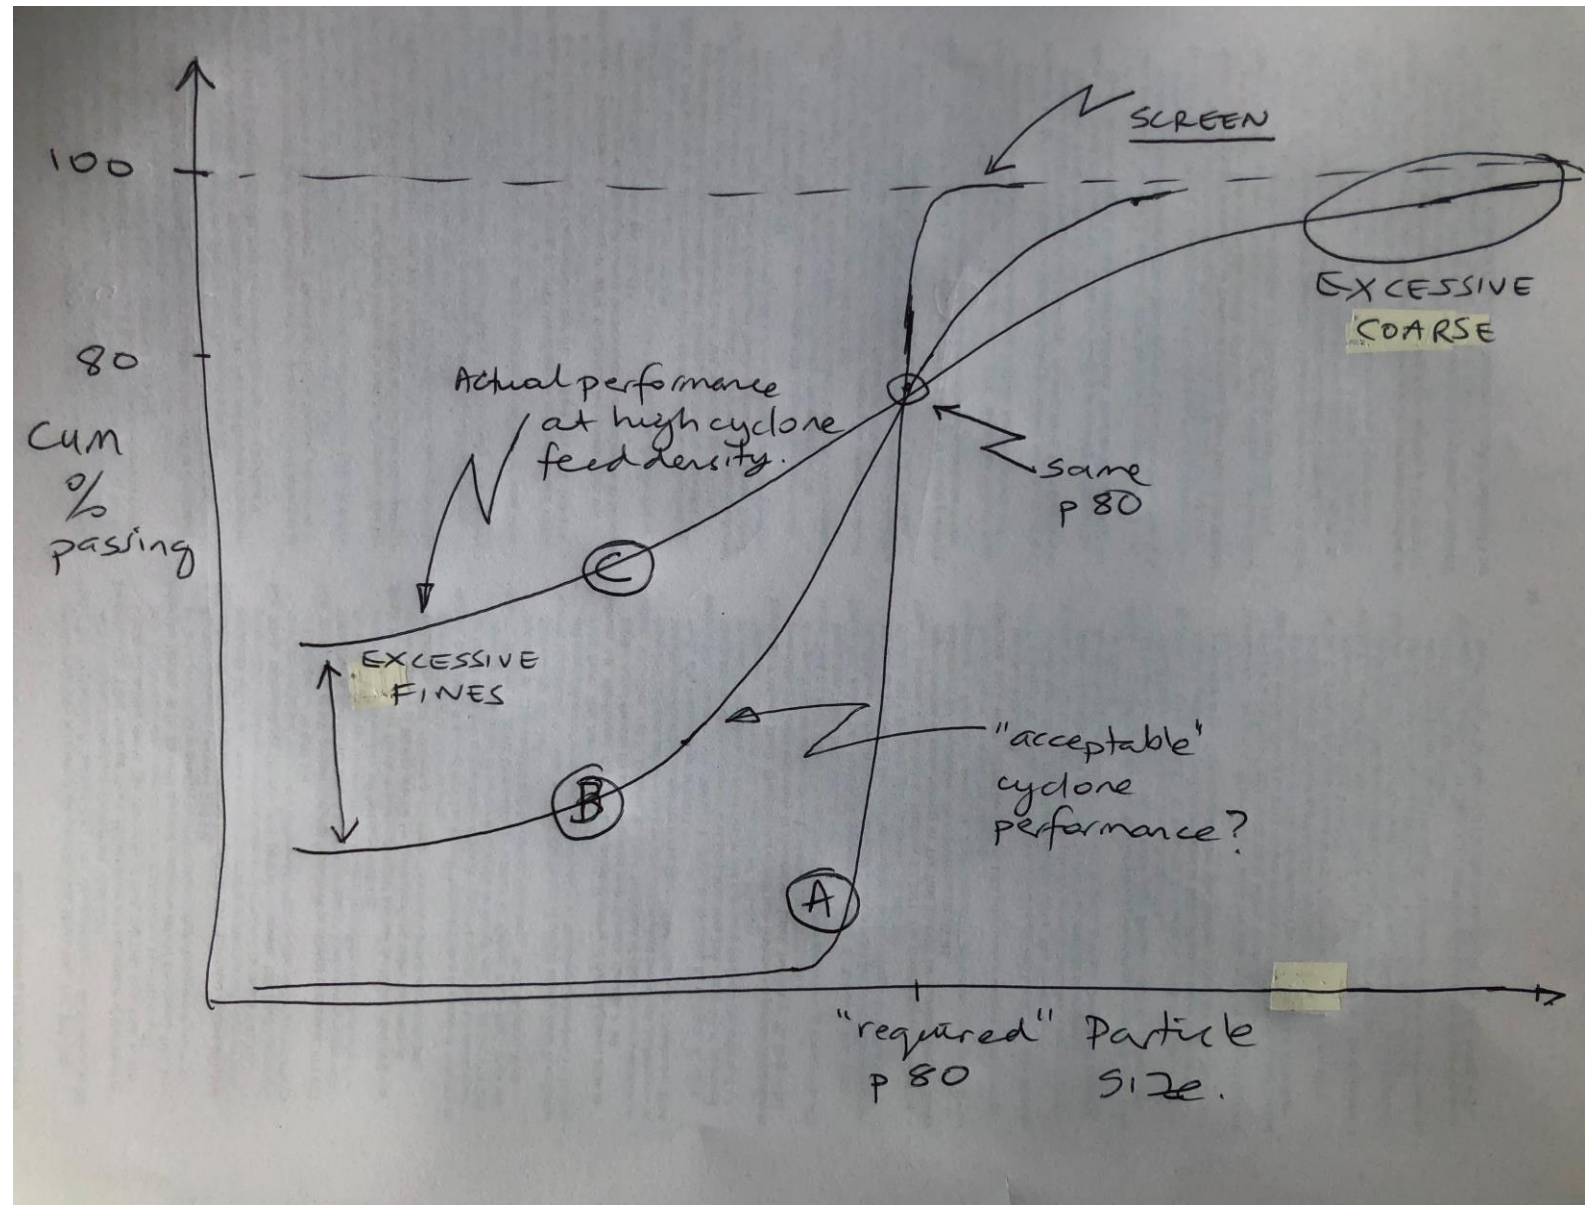 SCREEN
100
EXCESSIVE
COARSE
80
Actual performance
at high cyclone
feed density.
Cum
%
passing
same
p 80
C
EXCESSIVE
FINES
"acceptable"
cyclone
performance?
B
A
"required"
p 80
Particle
Size.